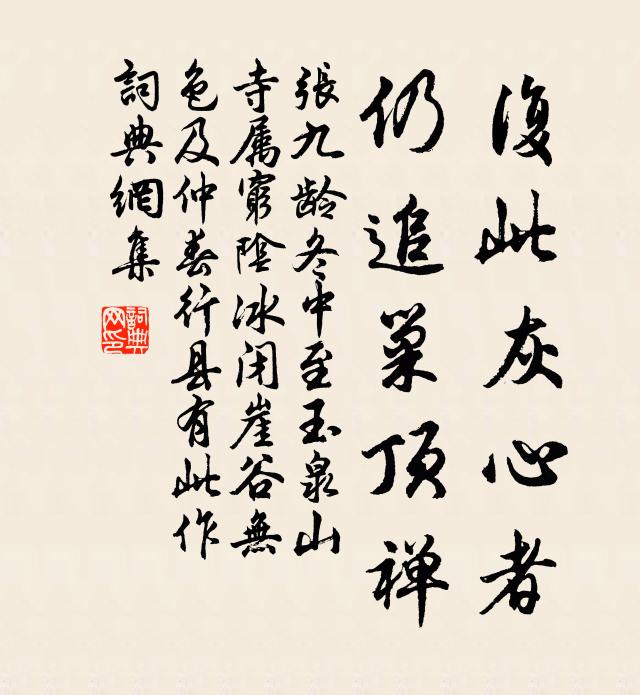 復此灰心者
仍追巢頂禅
張九齡冬中至玉泉山
寺属窮陰冰闭崖谷無
色及仲春行县有此作
詞典網集
詞典
网印